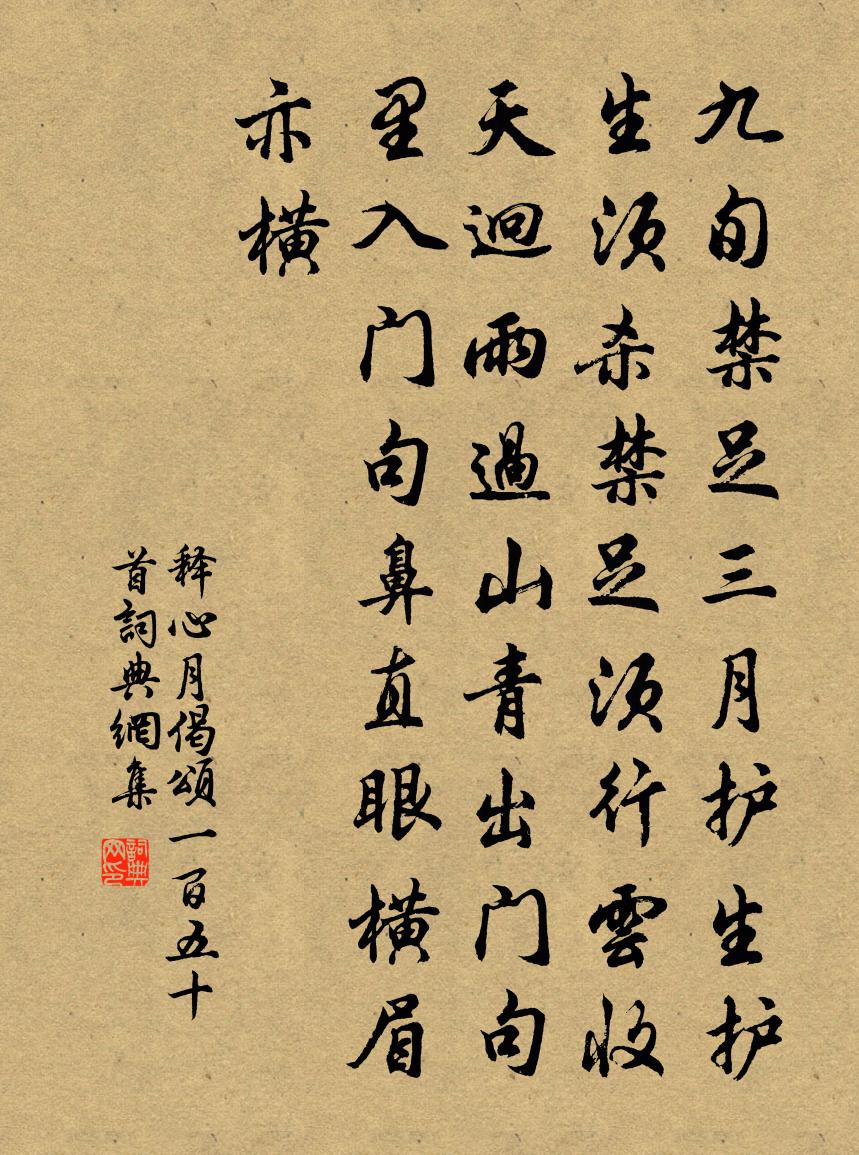 九旬禁足三月护生护
生须杀禁足须行雲收
天迥雨過山青出门句
里入门句鼻直眼橫眉
亦橫
释心月偈頌一百五十
首詞典網集
詞典
网印